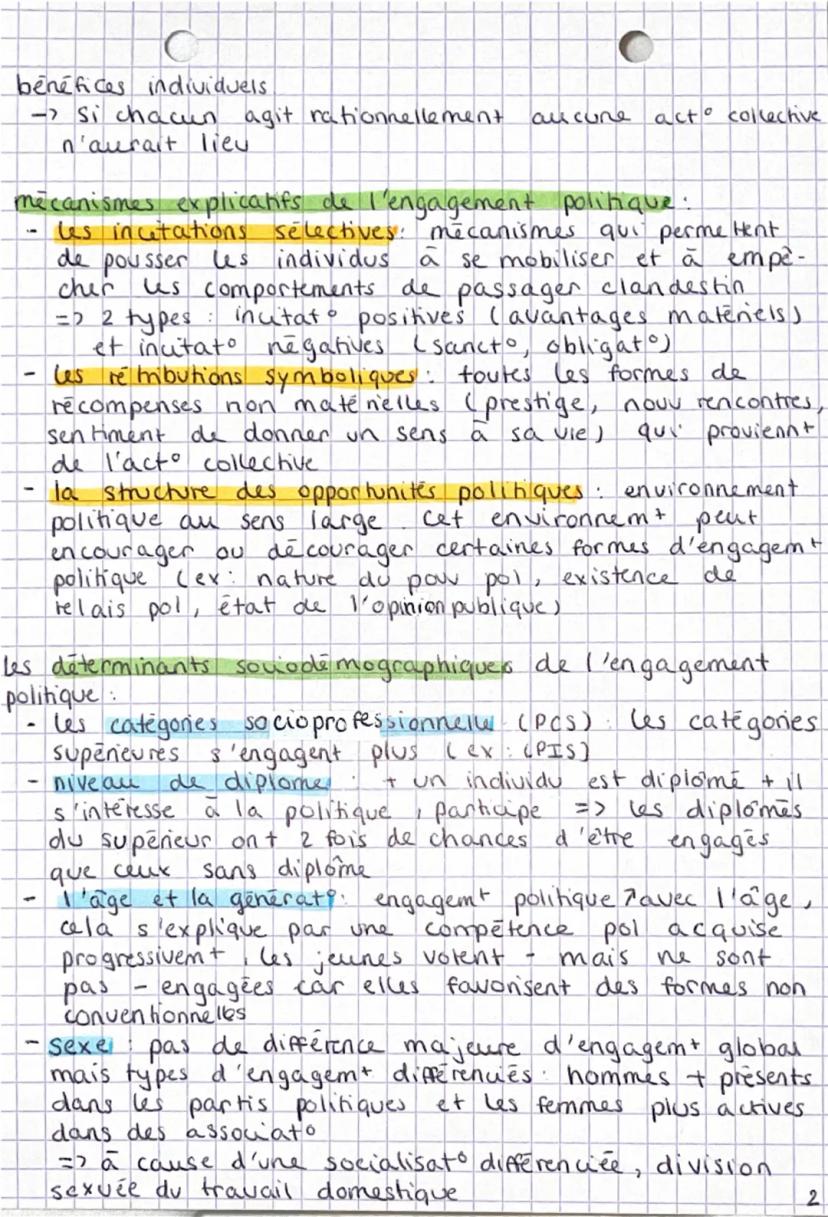 bénéfices individuels
-> Si chacun agit rationnellement aucune act° collective
n'aurait lieu
mécanismes explicatifs de l'engagement politique :
- les incitations sélectives : mécanismes qui permettent
de pousser les individus à se mobiliser et à empê-
cher les comportements de passager clandestin
=> 2 types : incitat° positives (avantages matériels)
et incitat° négatives (sanct°, obligat°)
- les rétributions symboliques : toutes les formes de
récompenses non matérielles (prestige, nouv rencontres,
sentiment de donner un sens à sa vie) qui proviennt
de l'act° collective
- la structure des opportunités politiques : environnement
politique au sens large. cet environnemt peut
encourager ou décourager certaines formes d'engagemt
politique (ex : nature du pouv pol, existence de
relais pol, état de l'opinion publique)
les déterminants sociodémographiques de l'engagement
politique :
- les catégories socioprofessionnelle (PCS) : les catégories
supérieures s'engagent plus (ex : CPIS)
- niveau de diplome : + un individu est diplômé + il
s'intéresse à la politique, participe => les diplômés
du supérieur ont 2 fois de chances d'être engagés
que ceux sans diplôme
- l'âge et la générat° : engagemt politique ↗ avec l'âge,
cela s'explique par une compétence pol acquise
progressivemt, les jeunes votent - mais ne sont
pas - engagées car elles favorisent des formes non
conventionnelles
- sexe : pas de différence majeure d'engagemt global
mais types d'engagemt différenciés : hommes + présents
dans les partis politiques et les femmes plus actives
dans des associat°
=> à cause d'une socialisat° différenciée, division
sexuée du travail domestique
2